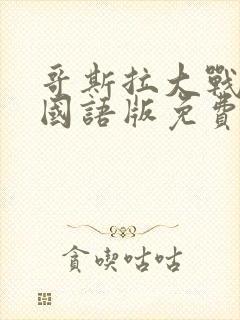 哥斯拉大戰
國語版免費
貪喫咕咕